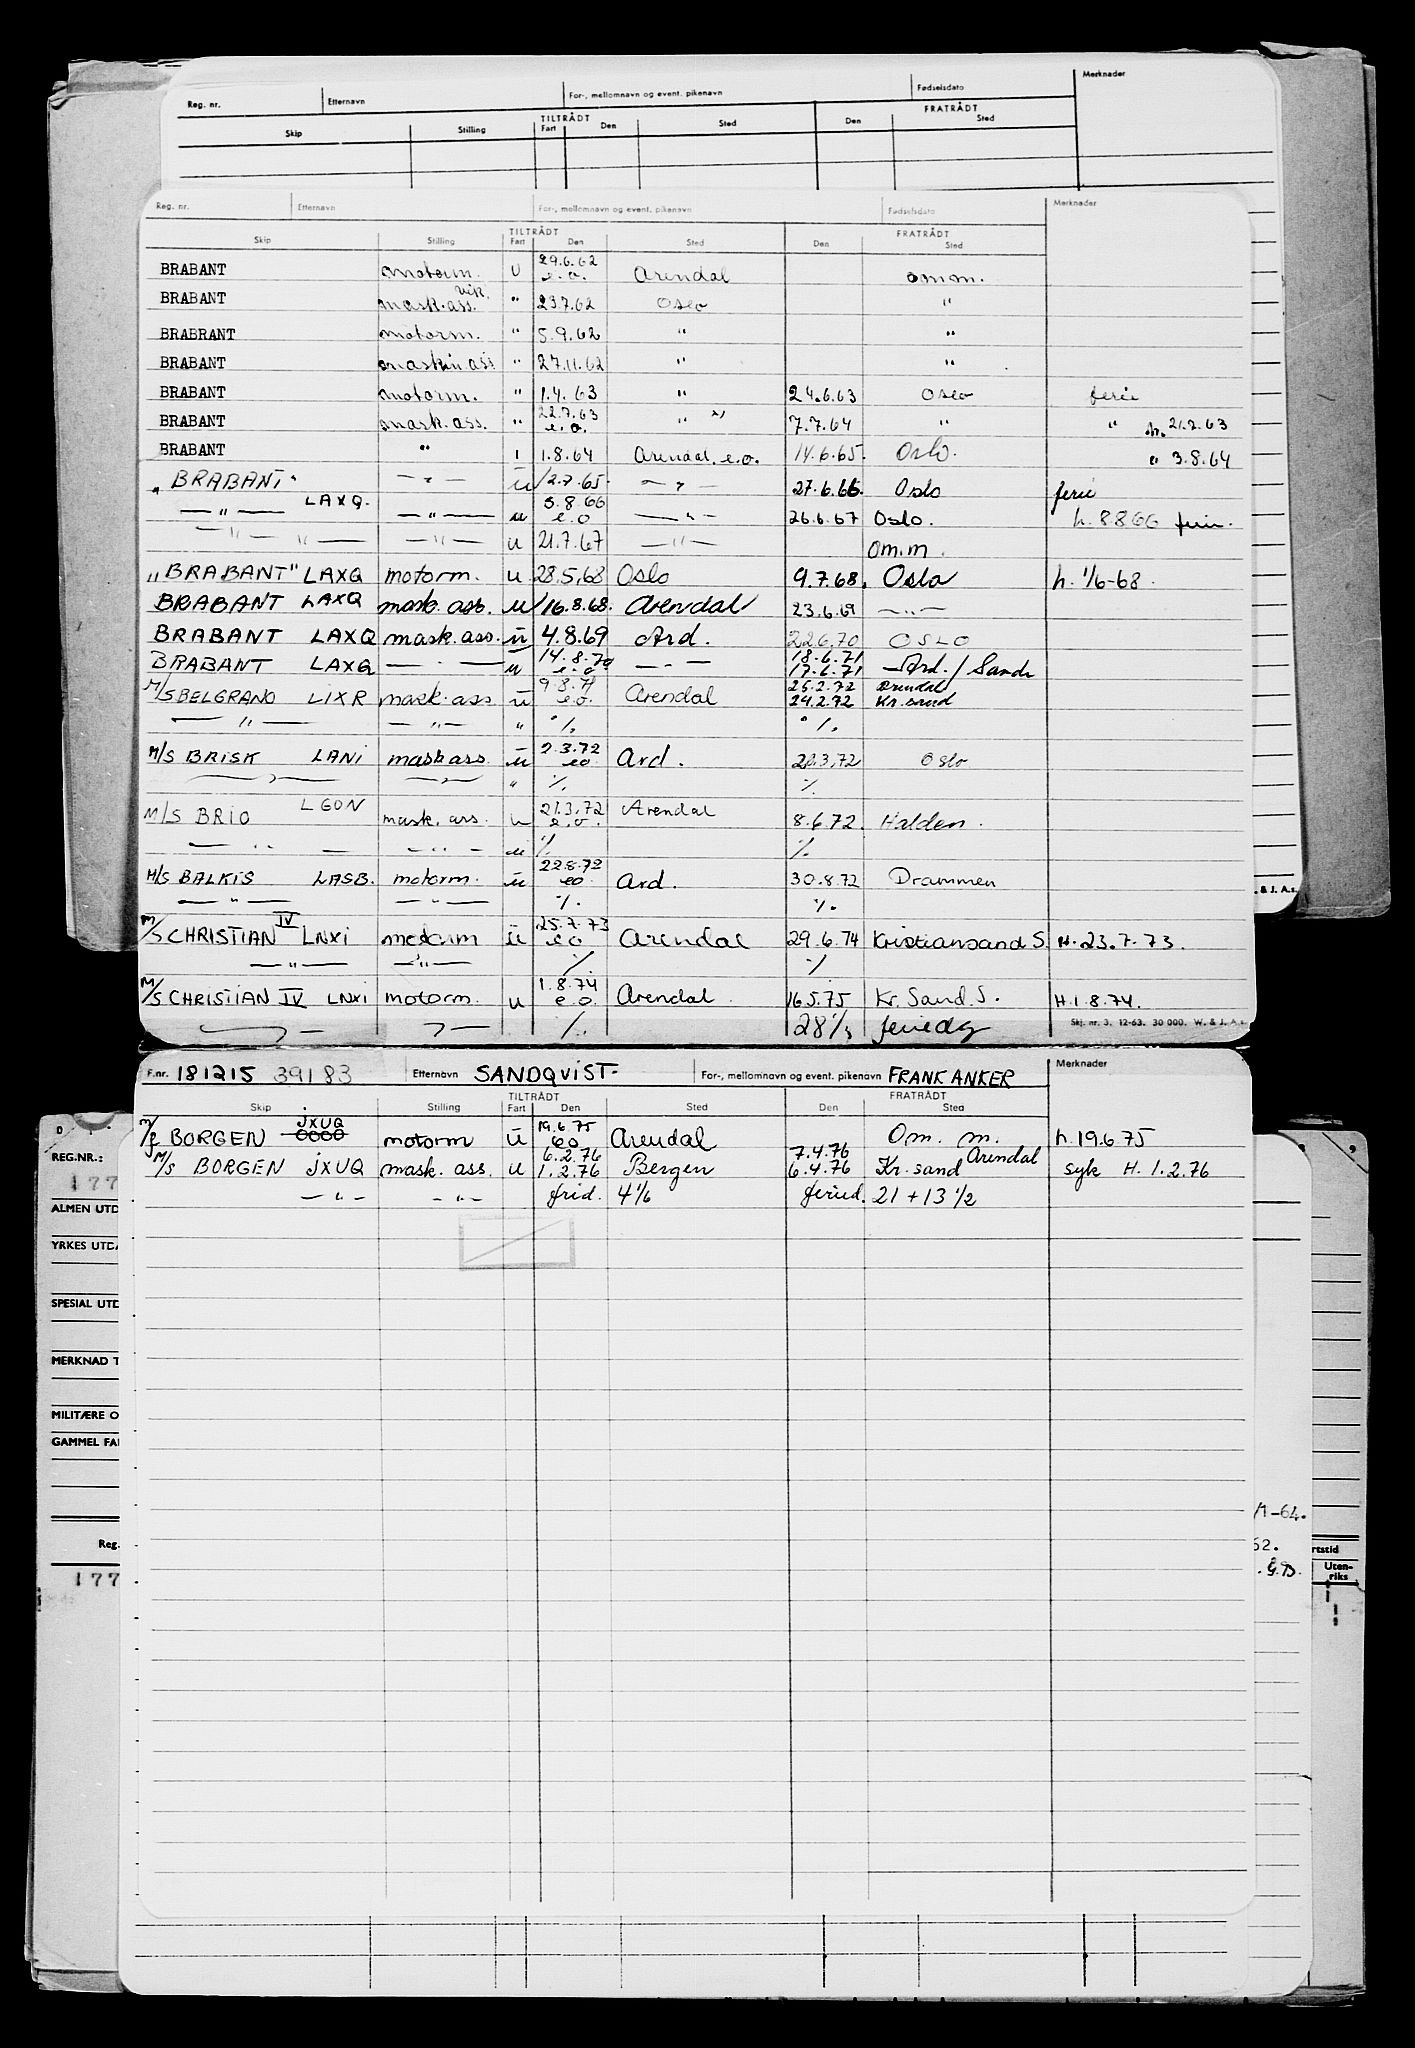 Reg. nr. Etternavn For-, mellomnavn og event. pikenavn Fødselsdato Merknader
TILTRÅDT FRATRÅDT
Skip Stilling Fart Den Sted Den Sted
Reg. nr. Etternavn For-, mellomnavn og event. pikenavn Fødselsdato Merknader
TILTRÅDT FRATRÅDT
Skip Stilling Fart Den Sted Den Sted
BRABANT motorm. U 29.6.62 e.o. Arendal omm.
BRABANT mask.ass. vik. " 23.7.62 Oslo "
BRABRANT motorm. " 5.9.62 " "
BRABANT maskin ass " 27.11.62 " "
BRABANT motorm. " 1.4.63 " 24.6.63 Oslo ferie
BRABANT mask.ass. " 22.7.63 e.o. " x) 7.7.64 " " 21.7.63
BRABANT " 1.8.64 Arendal.e.o. 14.6.65. Oslo. " 3.8.64
"BRABANT" — " — u 12.7.65. — " — 27.6.66. Oslo ferie
— " — LAXQ. — " — u 5.8.66 e.o — " — 26.6.67 Oslo. h. 8.8 66 ferie.
— " — " — — " — u 21.7.67 — " — om.m.
"BRABANT" LAXQ motorm. u 28.5.68 Oslo 9.7.68. Oslo h. 1/6-68.
BRABANT LAXQ mask. ass. u 16.8.68. Arendal 23.6.69 — " —
BRABANT LAXQ mask.ass. u 4.8.69 Ard. 22.6.70 OSLO
BRABANT LAXQ — " — u 14.8.70 e.o — " — 18.6.71 17.6.71 Ard. / Sande
M/S BELGRANO LIXR mask.ass u 9.8.71 e.o. Arendal 25.2.72 Arendal 24.2.72 Kr.sand
— " — — " — " % %
M/S BRISK LANI mask ass. u 2.3.72 eo Ard. 20.3.72 Oslo
— " — — " — " % %
M/S BRIO LGON mask. ass. u 21.3.72 e.o. Arendal 8.6.72. Halden.
— " — — " — u % %
M/S BALKIS LASB. motorm. u 22.8.72 eo. Ard. 30.8.72 Drammen
— " — — " — % %
M/S CHRISTIAN IV LNXI motorm u 25.7.73 eo Arendal 29.6.74 Kristiansand S. H. 23.7.73.
— " — — " — % %
M/S CHRISTIAN IV LNXI motorm. u 1.8.74 e.o. Arendal 16.5.75 Kr. Sand S. H. 1.8.74.
— " — — " — % 28 1/3 feriedg
Skj. nr. 3. 12-63. 30 000. W. & J. A.s.
& J. A.s.
F.nr. 181215 39183 Etternavn SANDQVIST- For-, mellomnavn og event. pikenavn FRANK ANKER Merknader
TILTRÅDT FRATRÅDT
Skip Stilling Fart Den Sted Den Sted
M/S BORGEN JXUQ motorm u 19.6.75 eo Arendal Om. m. h. 19.6.75
M/S BORGEN JXUQ mask. ass. u 6.2.76 1.2.76 Bergen 7.4.76 6.4.76 Kr.sand Arendal syk H. 1.2.76
— " — — " — frid. 4 1/6 feried. 21 + 13 1/2
REG.NR.:
177
ALMEN UTD
YRKES UTDA
SPESIAL UTD
MERKNAD T
MILITÆRE O
GAMMEL FA
Reg.
177
/1-64.
62.
. G.B.
rtstid
Uten-
riks